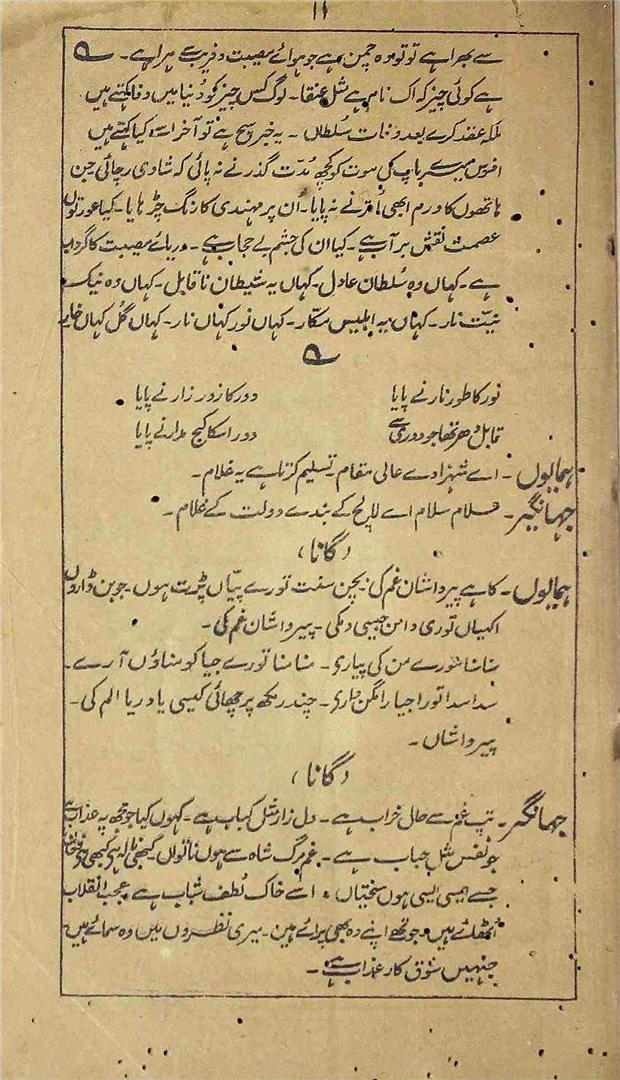 ۱۱
سے بھرا ہے تو تو وہ چمن ہے جو ہوائے مصیبت و فریب سے ہرا ہے۔
ہے کوئی چیز کہ اک نام ہے مثل عنقا۔ لوگ کس چیز کو دُنیا میں وفا کہتے ہیں
ملکہ عقد کرے بعد وفات سُلطاں۔ یہ خبر سچ ہے تو آخر اسے کیا کہتے ہیں
افسوس میرے باپ کی موت کو کچھ مُدّت گذرنے نہ پائی کہ شادی رچائی جن
ہاتھوں کا ورم ابھی اترنے نہ پایا۔ اُن پر مہندی کا رنگ چڑھایا۔ کیا عورتوں
عصمت نقش بر آب ہے۔ کیا ان کی چشم بے حجاب ہے۔ دریائے مصیبت کا گرداب
ہے۔ کہاں وہ سُلطان عادل۔ کہاں یہ شیطان ناقابل۔ کہاں وہ نیک
نیت نار۔ کہاں یہ ابلیس مکار۔ کہاں نور کہاں نار۔ کہاں گُل کہاں خار
نور کا طور نار نے پایا دور کا زور زار نے پایا
قابل دھر تھا جو دوری سے دور اسکا کج مدار نے پایا
ہمایوں۔ اے شہزادے عالی مقام۔ تسلیم کرتا ہے یہ غلام۔
جہانگیر۔ سلام سلام اے لالچ کے بندے دولت کے غلام۔
(گانا)
ہمایوں۔ کاہے پیرواشان غم کی بچن سنت تورے پیّاں پڑت ہوں۔ جوبن واروں
اکہیاں توری دامن جیسی دمکی۔ پیرواشان غم کی۔
سنا سنا مورے من کی پیاری۔ سنا سنا تورے جیا کو مناؤں آرے۔
سدا سدا تورا جیارا مگن جاری۔ چندر مکھ پر چھائی کیسی یاد ریا الم کی۔
پیرواشاں۔
(گانا)
جہانگیر۔ تپ غم سے حال خراب ہے۔ دل زار مثل کباب ہے۔ کہوں کیا جو مجھ پہ عذاب ہے
جو نفس مثل حباب ہے۔ غم مرگ شاہ سے ہوں ناتواں۔ کبھی نالہ ہے کبھی
جسے ایسی ایسی ہوں سختیاں۔ اسے خاک لُطف شباب ہے عجب انقلاب
اُٹھائے ہیں۔ جو تھے اپنے وہ بھی پرائے ہیں۔ میری نظروں میں وہ سمائے ہیں
جنہیں شوق کار عذاب ہے۔